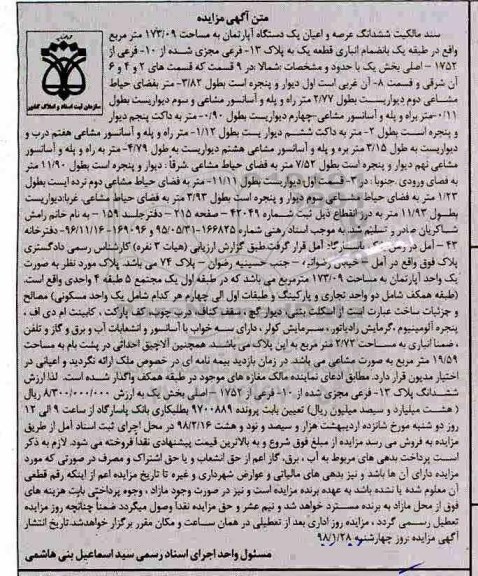 متن آگهی مزایده
سند مالکیت ششدانگ عرصه و اعیان یک دستگاه آپارتمان به مساحت ۱۷۳/۰۹ متر مربع
واقع در طبقه یک بانضمام انباری قطعه یک به پلاک ۱۳- فرعی مجزی شده از ۱۰- فرعی از
۱۷۵۲ – اصلی بخش یک با حدود و مشخصات شمالا :در ۹ قسمت که قسمت های ۲ و ۴ و ۶
آن شرقی و قسمت ۸- آن غربی است اول دیوار و پنجره است بطول ۳/۸۲- متر بفضای حیاط
مشاعی دوم دیواریست بطول ۲/۷۷ متر راه و پله و آسانسور مشاعی و سوم دیواریست بطول
۰/۱۱-متر براه و پله و آسانسور مشاعی-چهارم دیواریست بطول ۰/۹۰- متر به داکت پنجم دیوار
و پنجره است بطول ۲- متر به داکت ششم دیوار یست بطول ۱/۱۲- متر راه و پله و آسانسور مشاعی هفتم درب و
دیواریست به طول ۳/۱۵ متر بره و پله و آسانسور مشاعی هشتم دیواریست به طول ۴/۷۹- متر به راه و پله و آسانسور
مشاعی نهم دیوار و پنجره است بطول ۷/۵۲ متر به فضای حیاط مشاعی .شرقا : دیوار و پنجره است بطول ۱۱/۹۰ متر
به فضای ورودی .جنوبا : در ۳- قسمت اول دیواریست بطول ۱۱/۱۱- متر به فضای حیاط مشاعی دوم نرده ایست بطول
۱/۲۳ متر به فضای حیاط مشاعی سوم دیوار و پنجره است بطول ۳/۹۳ متر به فضای حیاط مشاعی. غربا:دیواریست
بطول ۱۱/۹۳ متر به درز انقطاع ذیل ثبت شماره ۴۲۰۴۹ صفحه ۲۱۵ – دفترجلد ۱۵۹ – به نام خانم رامش
شباکریان صادر و تسلیم شد. به موجب اسناد رهنی شماره ۱۶۶۸۲۵-۹۵/۰۵/۳۱ و ۱۶۹۰۹۶ -۹۶/۱۱/۱۶- دفترخانه
۴۳ – آمل در رهن بانک پاسارگاد آمل قرار گرفت.طبق گزارش ارزیابی (هیات ۳ نفره) کارشناس رسمی دادگستری
پلاک فوق واقع در آمل – خیابان رضوانی – جنب حسینیه رضوان – پلاک ۷۴ می باشد. پلاک مورد نظر به صورت
یک واحد آپارتمان به مساحت ۱۷۳/۰۹ مترمربع می باشد که در طبقه اول یک مجتمع ۵ طبقه ۴ واحدی واقع است.
(طبقه همکف شامل دو واحد تجاری و پارکینگ و طبقات اول الی چهارم هر کدام شامل یک واحد مسکونی) مصالح
و جزئیات ساخت عبارت است از اسکلت بتنی، دیوار گچ ، سقف کناف، درب چوب، کف پارکت ، کابینت ام دی اف ،
پنجره آلومینیوم ،گرمایش رادیاتور، سرمایش کولر ، دارای سه خواب با آسانسور و انشعابات آب و برق و گاز و تلفن
، ضمنا انباری به مساحت ۲/۷۲ متر مربع به این پلاک می باشد. همچنین آلاچیق احداثی در پشت بام به مساحت
۱۹/۵۹ متر مربع به صورت مشاعی می باشد. در زمان بازدید بیمه نامه ای در خصوص ملک ارائه نگردید و اعیانی در
اختیار مدیون قرار دارد. مطابق ادعای نماینده مالک مغازه های موجود در طبقه همکف واگذار شده است. لذا ارزش
ششدانگ پلاک ۱۳- فرعی مجزی شده از ۱۰- فرعی از ۱۷۵۲ – اصلی بخش یک به ارزش ۸/۳۰۰/۰۰۰/۰۰۰ ریال
( هشت میلیارد و سیصد میلیون ریال) تعیین بابت پرونده ۹۷۰۰۸۸۹ بطلبکاری بانک پاسارگاد از ساعت ۹ الی ۱۲
روز دو شنبه مورخ شانزده اردیبهشت هزار و سیصد و نود و هشت ۹۸/۲/۱۶ در محل اجرای ثبت اسناد آمل از طریق
مزایده به فروش می رسد مزایده از مبلغ فوق شروع و به بالاترین قیمت پیشنهادی نقدا فروخته می شود. لازم به ذکر
است پرداخت بدهی های مربوط به آب ، برق، گاز اعم از حق انشعاب و یا حق اشتراک و مصرف در صورتی که مورد
مزایده دارای آن ها باشد و نیز بدهی های مالیاتی و عوارض شهرداری و غیره تا تاریخ مزایده اعم از اینکه رقم قطعی
آن معلوم شده یا نشده باشد به عهده برنده مزایده است و نیز در صورت وجود مازاد ، وجوه پرداختی بابت هزینه های
فوق از محل مازاد به برنده مسترد خواهد شد و نیم عشر و حق مزایده نقدا وصول میگردد ضمنا چنانچه روز مزایده
تعطیل رسمی گردد ، مزایده روز اداری بعد از تعطیلی در همان ساعت و مکان مقرر برگزار خواهدشد.تاریخ انتشار
آگهی مزایده :روز چهارشنبه ۹۸/۱/۲۸
مسئولن واحد اجرای اسناد رسمی سید اسماعیل بنی هاشمی
سازمان ثبت اسناد و املاک کشور